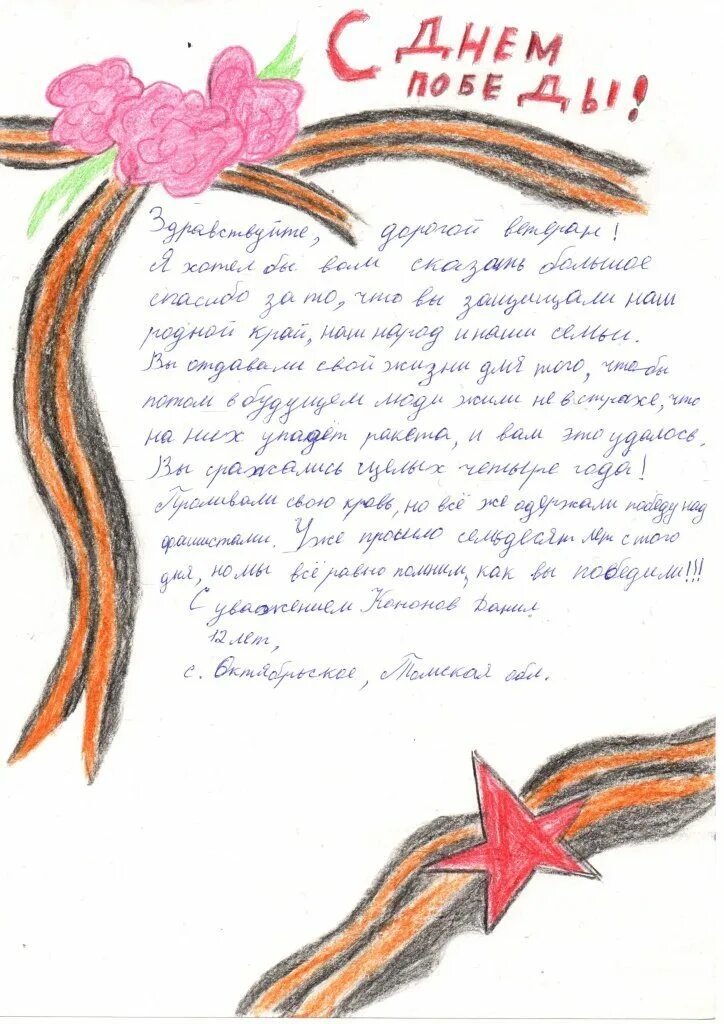 С ДНЕМ
ПОБЕДЫ!
Здравствуйте, дорогой ветеран!
Я хотел бы вам сказать большое
спасибо за то, что вы защищали наш
родной край, наш народ и наши семьи.
Вы отдавали свой жизни для того, чтобы
потом в будущем люди жили не в страхе, что
на них упадёт ракета, и вам это удалось.
Вы сражались целых четыре года!
Проливали свою кровь, но всё же одержали победу над
фашистами. Уже прошло семьдесят лет с того
дня, но мы всё равно помним, как вы победили!!!
С уважением Кононов Данил
12 лет,
с. Октябрьское, Томская обл.